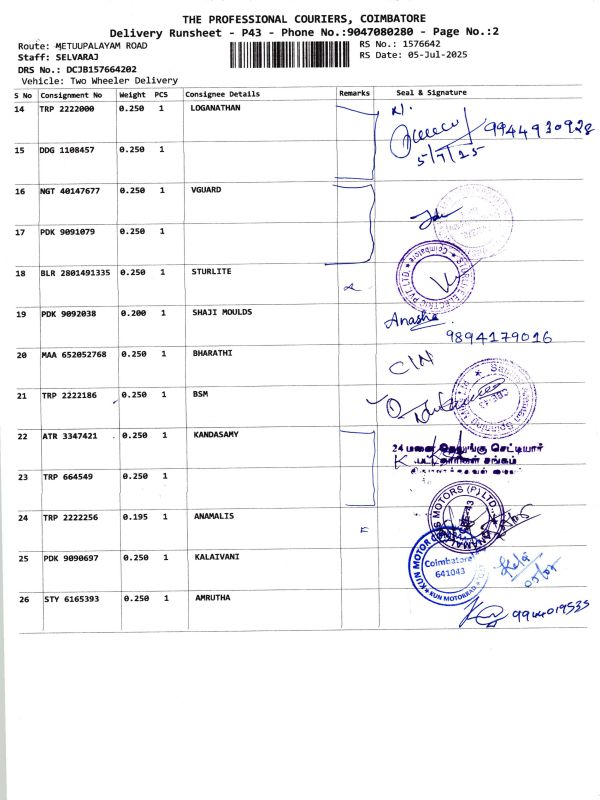 THE PROFESSIONAL COURIERS, COIMBATORE
Delivery Runsheet - P43 - Phone No.:9047080280 - Page No.:2
Route: METUUPALAYAM ROAD RS No.: 1576642
Staff: SELVARAJ RS Date: 05-Jul-2025
DRS No.: DCJB157664202
Vehicle: Two Wheeler Delivery
S No Consignment No Weight PCS Consignee Details Remarks Seal & Signature
14 TRP 2222000 0.250 1 LOGANATHAN
9944930928
5/7/25
15 DDG 1108457 0.250 1
16 NGT 40147677 0.250 1 VGUARD
17 PDK 9091079 0.250 1
18 BLR 2801491335 0.250 1 STURLITE
Coimbatore
19 PDK 9092038 0.200 1 SHAJI MOULDS Anasha
9894179016
20 MAA 652052768 0.250 1 BHARATHI
21 TRP 2222186 0.250 1 BSM
22 ATR 3347421 0.250 1 KANDASAMY
24 மனை தெலுங்கு செட்டியார்
23 TRP 664549 0.250 1
24 TRP 2222256 0.195 1 ANAMALIS
MOTORS (P) LTD
25 PDK 9090697 0.250 1 KALAIVANI
KUN MOTOR
Coimbatore
641043
KUN MOTORRAD
26 STY 6165393 0.250 1 AMRUTHA
9944019535